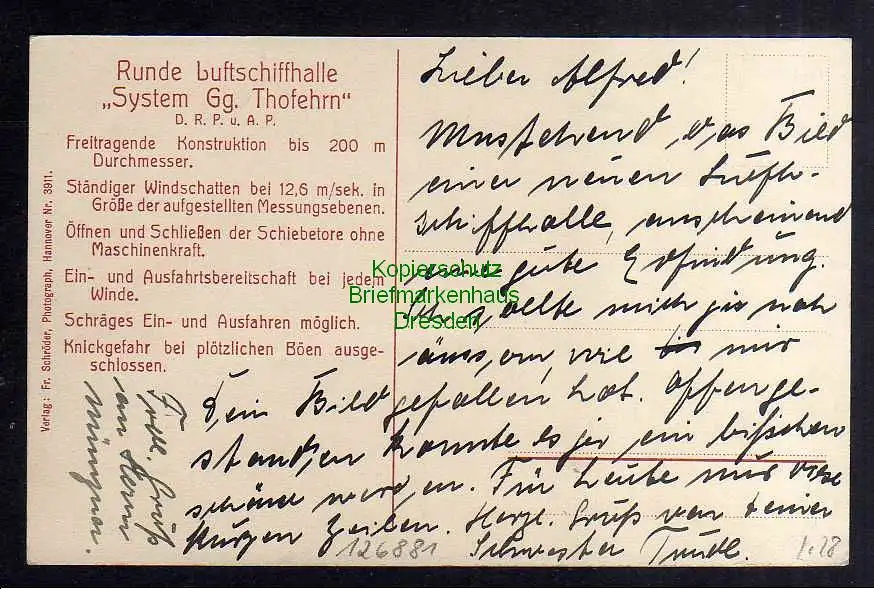 Runde Luftschiffhalle
„System Gg. Thofehrn"
D. R. P. u. A. P.
Freitragende Konstruktion bis 200 m
Durchmesser.
Ständiger Windschatten bei 12,6 m/sek. in
Größe der aufgestellten Messungsebenen.
Öffnen und Schließen der Schiebetore ohne
Maschinenkraft.
Ein- und Ausfahrtsbereitschaft bei jedem
Winde.
Schräges Ein- und Ausfahren möglich.
Knickgefahr bei plötzlichen Böen ausge-
schlossen.
Verlag: Fr. Schröder, Photograph, Hannover Nr. 3911.
Lieber Alfred!
Umstehend das Bild
einer neuen Luft-
schiffhalle, anscheinend
eine gute Erfindung.
Ich sollte mich ja noch
äussern, wie mir
Dein Bild gefallen hat. Offenge-
standen konnte es ja ein bißchen
schöner werden. Für heute nur diese
kurzen Zeilen. Herzl. Gruß von deiner
Schwester Trudl.
Frdl. Gruß
an Herrn
Kopierschutz
Briefmarkenhaus
Dresden
126881